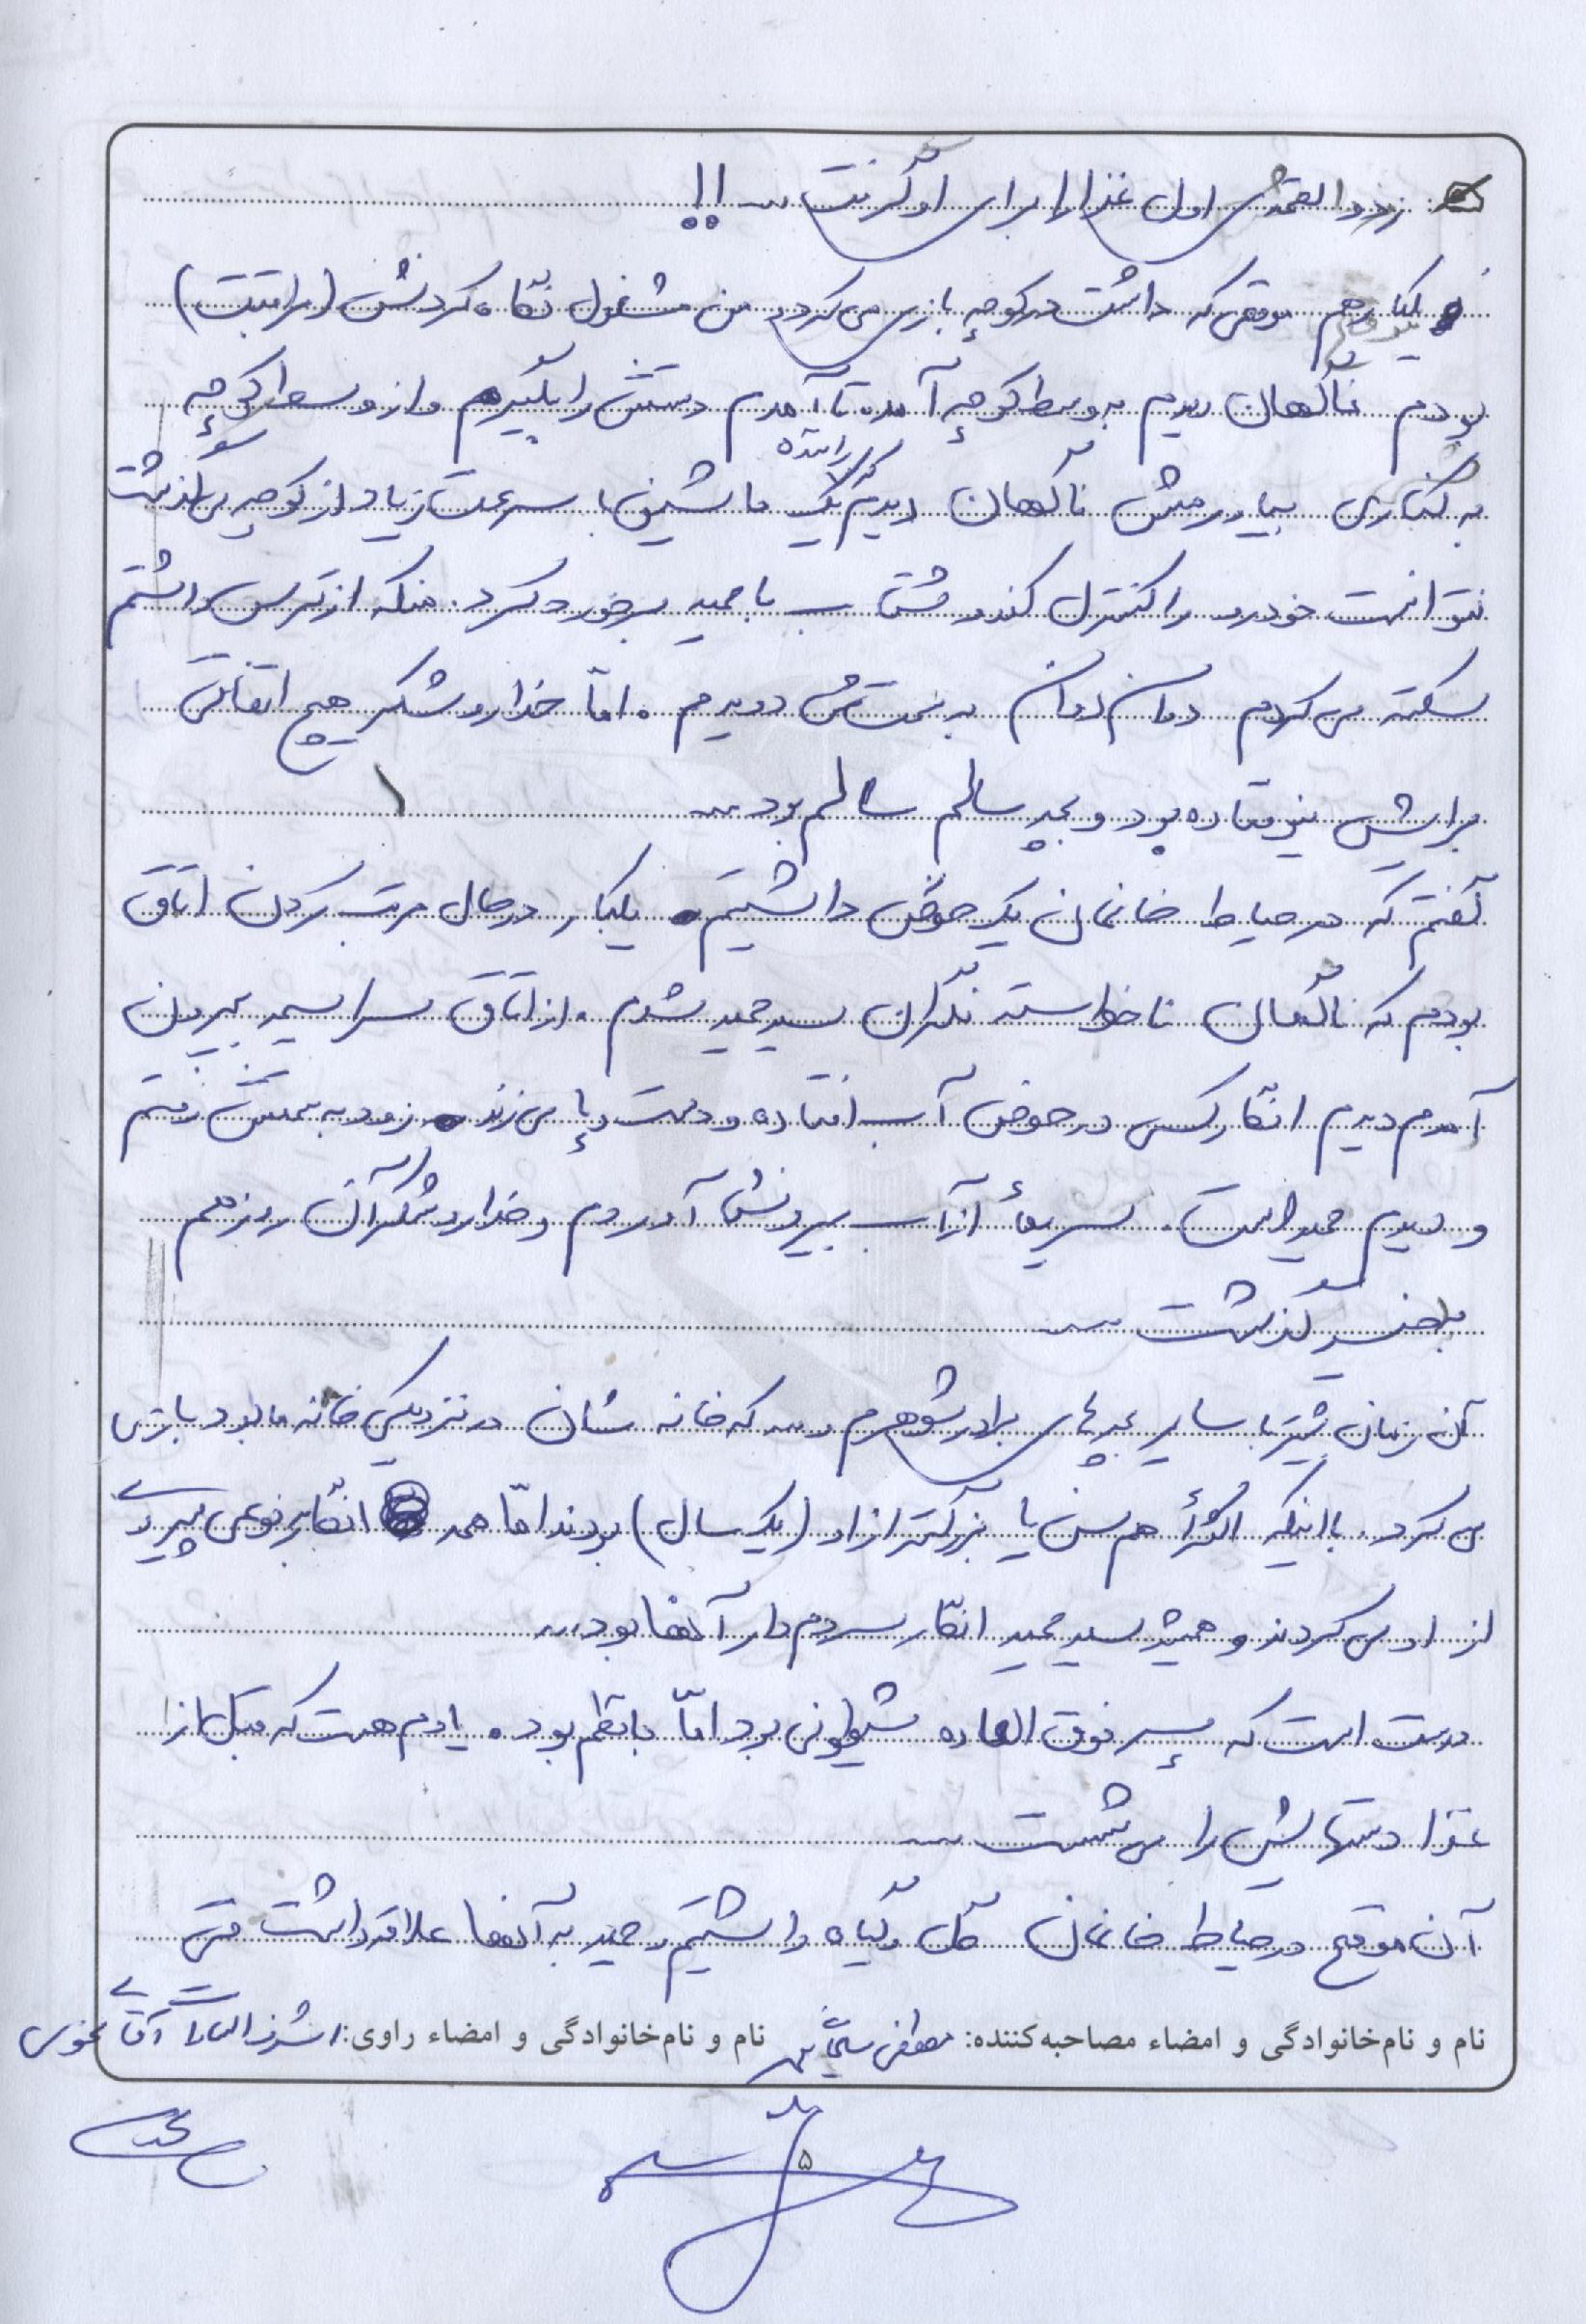 زود لقمه‌ی اول غذا را برای او گرفت ... !!
یکبار هم موقعی که داشت در کوچه بازی می‌کرد و من مشغول نگاه کردنش (مراقبت)
بودم ناگهان دیدم به وسط کوچه آمده تا آمدم دستش را بگیرم و از وسط کوچه
به کناری بیاورمش ناگهان دیدم که راننده یک ماشین با سرعت زیاد از کوچه می‌گذشت
نتوانست خودرو را کنترل کند و با حمید برخورد کرد. منکه از ترس داشتم
سکته می‌کردم دوان دوان به سمتش دویدم. امّا خدا رو شکر هیچ اتفاقی
برایش نیوفتاده بود و بچه سالم سالم بود ...
گفتم که در حیاط خانمان یک حوض داشتیم. یکبار در حال مرتب کردن اتاق
بودم که ناگهان ناخواسته نگران سید حمید شدم. از اتاق سراسیمه بیرون
آمدم دیدم انگار کسی در حوض آب افتاده و دست و پا می‌زند. زود به سمتش رفتم
و دیدم حمید است. سریعاً از آب بیرونش آوردم و خدا رو شکر آن روز هم
بخیر گذشت ...
آن زمان بیشتر با سایر بچه‌های برادر شوهرم که خانه شان در نزدیکی خانه ما بود بازی
می‌کرد. با اینکه اکثراً هم سن یا بزرگتر از او (یک سال) بودند امّا همه انگار به نوعی پیروی
از او می‌کردند و همیشه سید حمید انگار سردم‌دار آنها بود ...
درست است که پسر فوق العاده شیطونی بود امّا با نظم بود. یادم هست که قبل از
غذا دستهایش را می‌شست ...
آن موقع در حیاط خانمان گل و گیاه داشتیم و حمید به آنها علاقه داشت حتی
نام و نام‌خانوادگی و امضاء مصاحبه‌کننده: مصطفی نام و نام‌خانوادگی و امضاء راوی: اشرف السادات آقای
۵